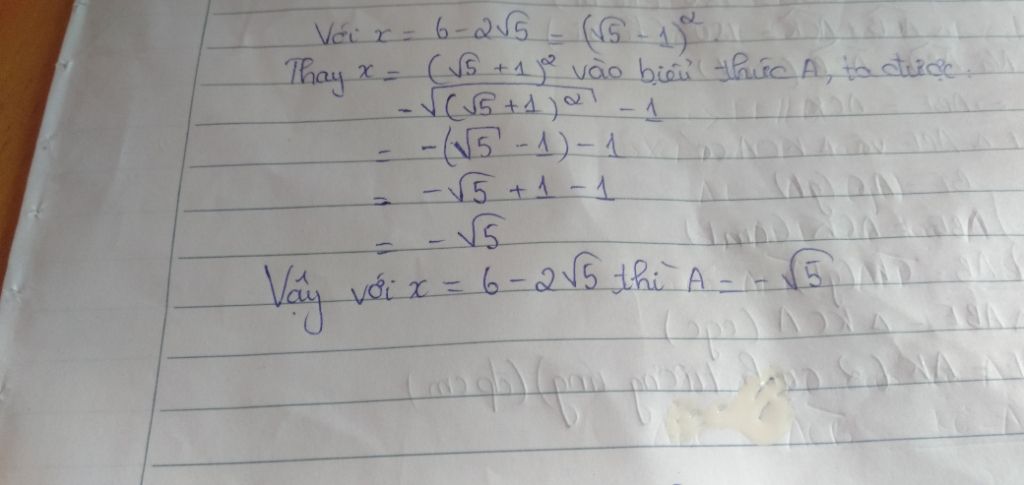 Với x = 6 - 2√5 = (√5 - 1)²
Thay x = (√5 + 1)² vào biểu thức A, ta được:
-√(√5 + 1)² - 1
= -(√5 - 1) - 1
= -√5 + 1 - 1
= -√5
Vậy với x = 6 - 2√5 thì A = -√5